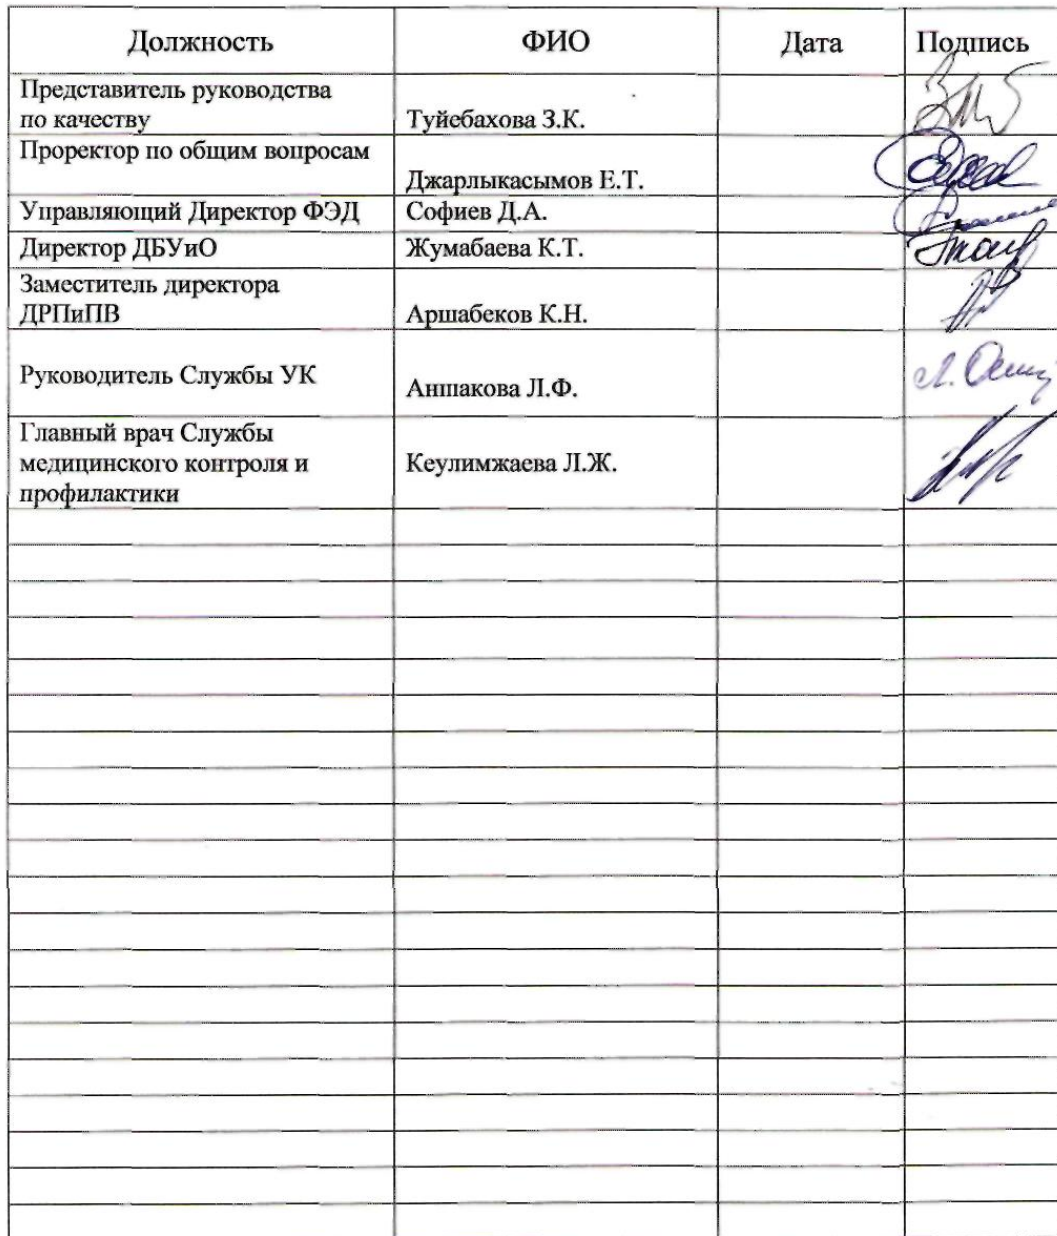 Должность ФИО Дата Подпись
Представитель руководства
по качеству Туйебахова З.К.
Проректор по общим вопросам
Джарлыкасымов Е.Т.
Управляющий Директор ФЭД Софиев Д.А.
Директор ДБУиО Жумабаева К.Т.
Заместитель директора
ДРПиПВ Аршабеков К.Н.
Руководитель Службы УК Аншакова Л.Ф.
Главный врач Службы
медицинского контроля и Кеулимжаева Л.Ж.
профилактики